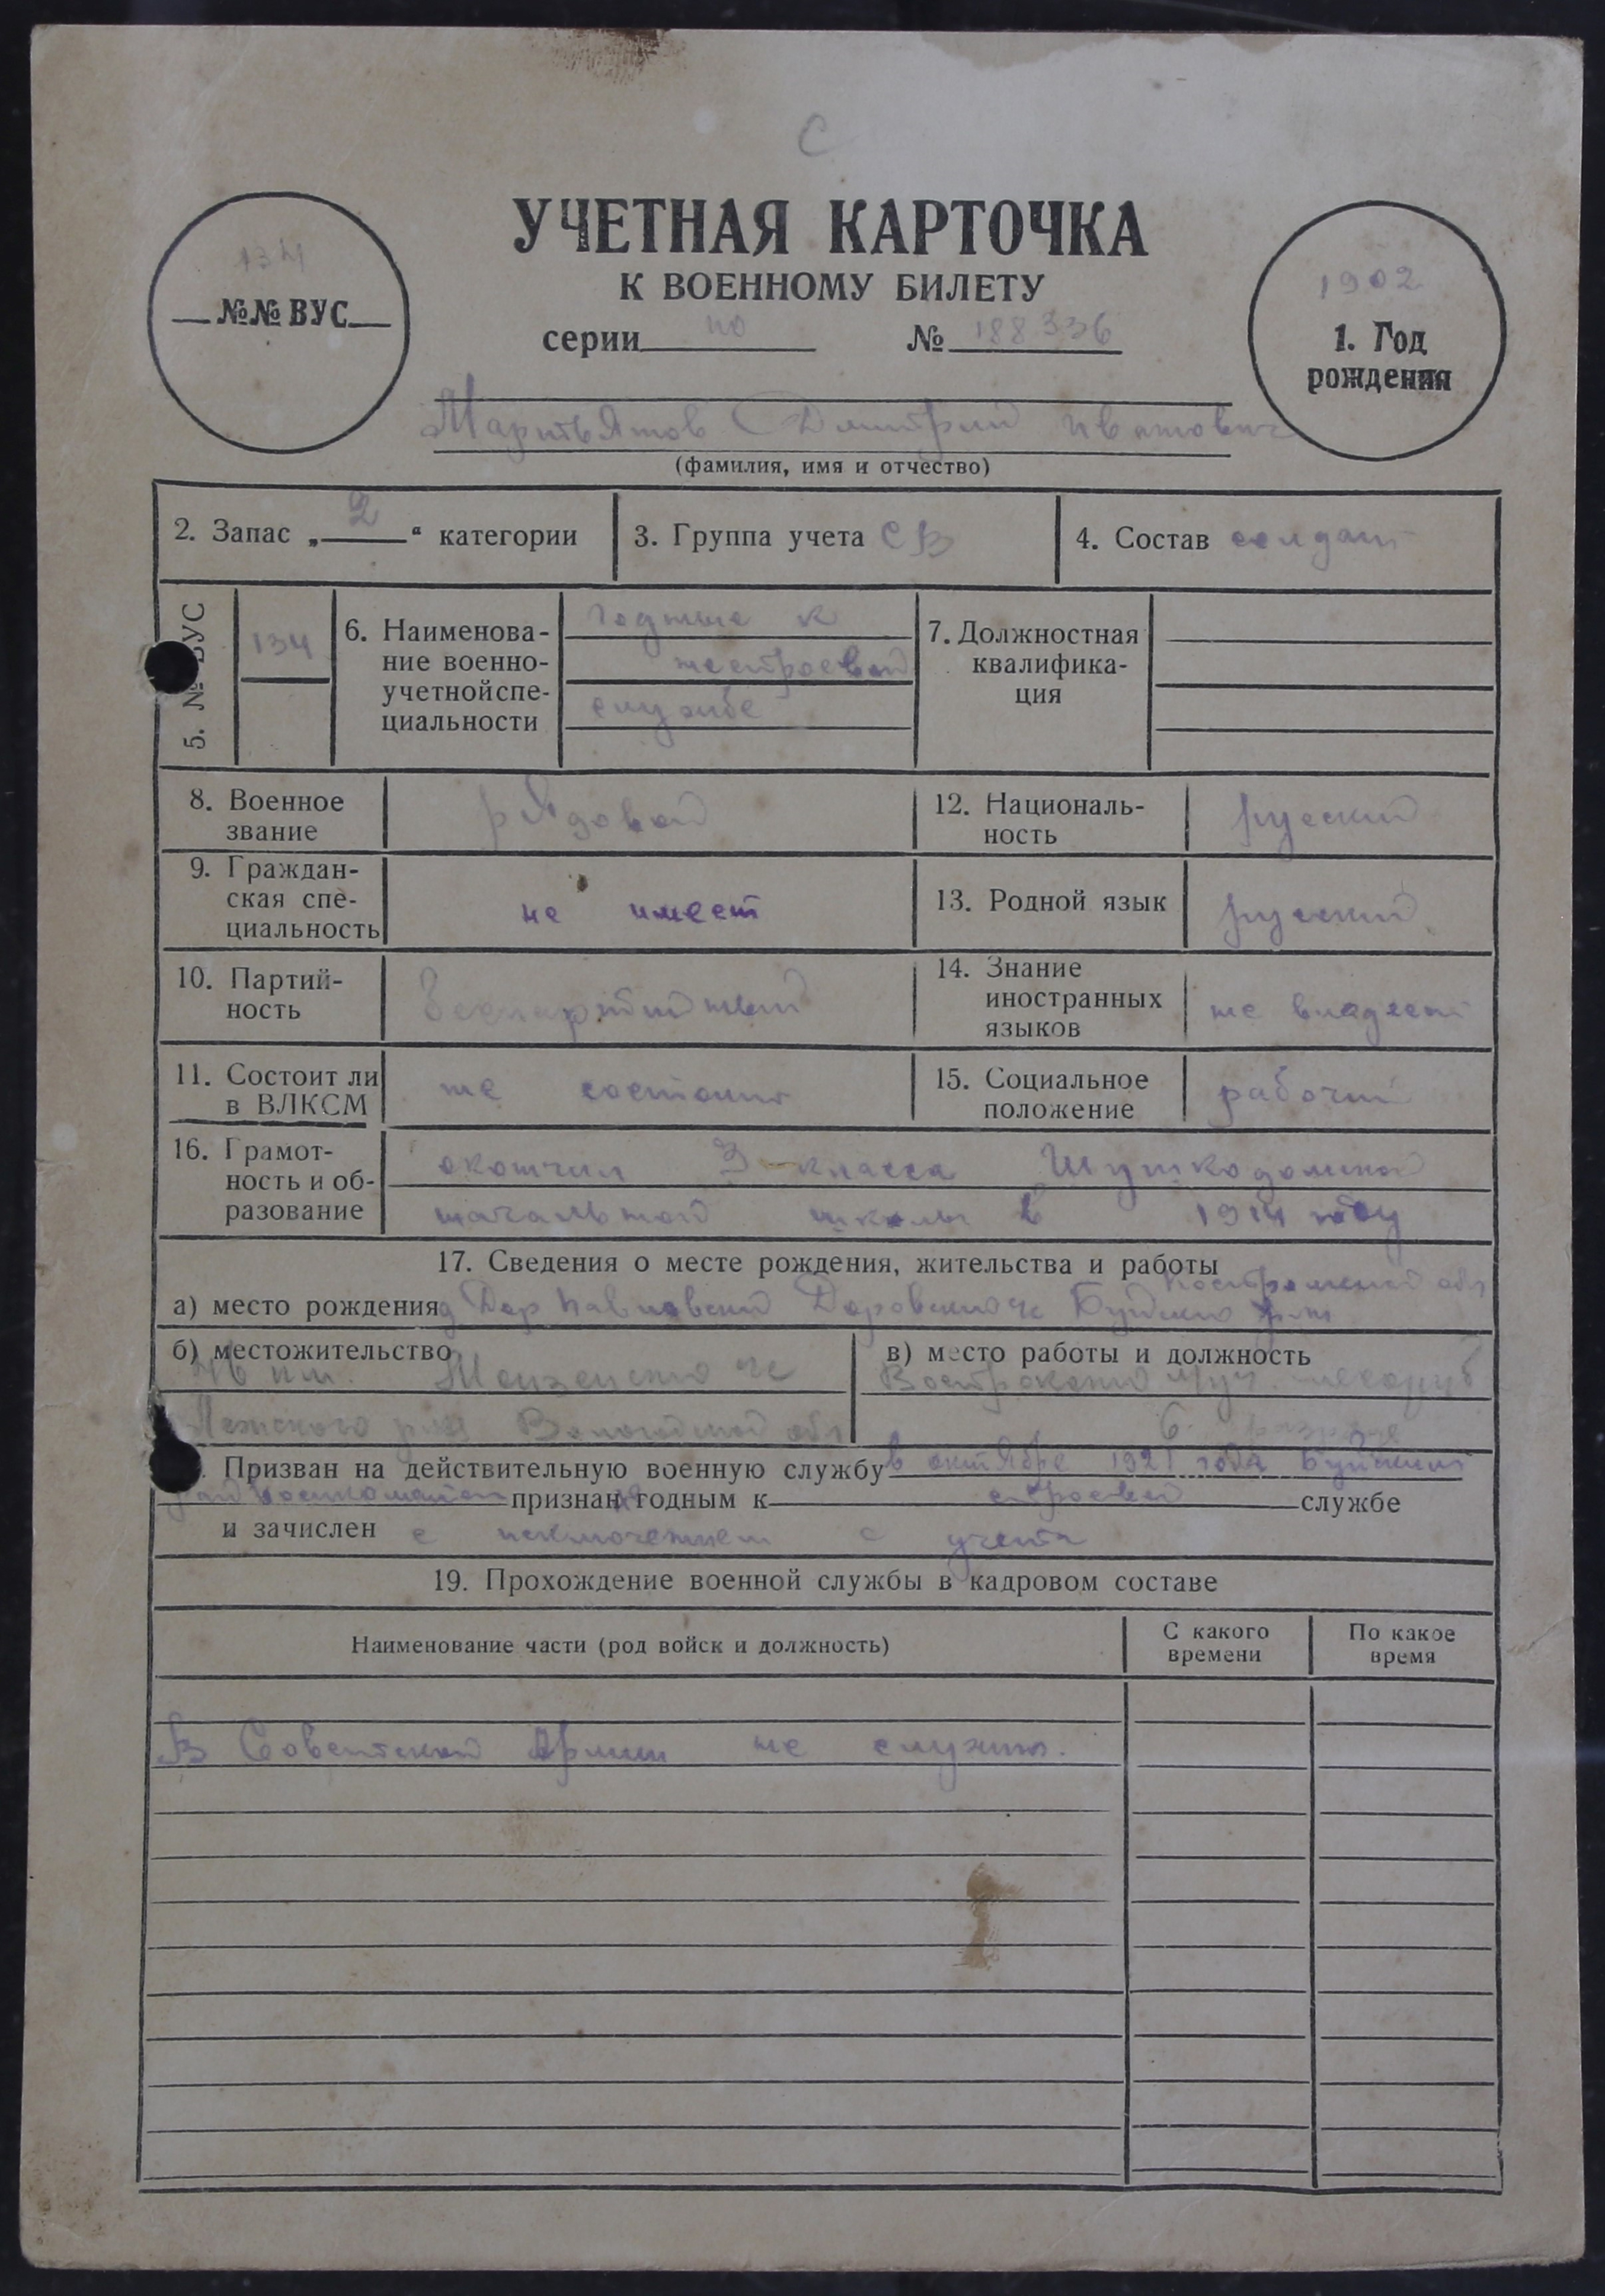 С
УЧЕТНАЯ КАРТОЧКА
К ВОЕННОМУ БИЛЕТУ
134
№№ ВУС
серии по № 188336
1902
1. Год
рождения
Мартьянов Дмитрий Иванович
(фамилия, имя и отчество)
2. Запас „2“ категории
3. Группа учета СВ
4. Состав солдат
5. № ВУС
134
6. Наименова-
ние военно-
учетной спе-
циальности
годные к
нестроевой
службе
7. Должностная
квалифика-
ция
8. Военное
звание
рядовой
12. Националь-
ность
русский
9. Граждан-
ская спе-
циальность
не имеет
13. Родной язык
русский
10. Партий-
ность
беспартийный
14. Знание
иностранных
языков
не владеет
11. Состоит ли
в ВЛКСМ
не состоит
15. Социальное
положение
рабочий
16. Грамот-
ность и об-
разование
окончил 3 класса Шушкодомской
начальной школы в 1914 году
17. Сведения о месте рождения, жительства и работы
Костромской обл
а) место рождения д Дор Павловский Доровский с/с Буйского р-на
б) местожительство
46 км. с/с
р-на Вологодской обл
в) место работы и должность
лесоруб
6 разряда
Призван на действительную военную службу в октябре 1921 года Буйским
райвоенкоматом признан не годным к строевой службе
и зачислен с исключением с учета
19. Прохождение военной службы в кадровом составе
Наименование части (род войск и должность)
С какого
времени
По какое
время
В Советской Армии не служил.